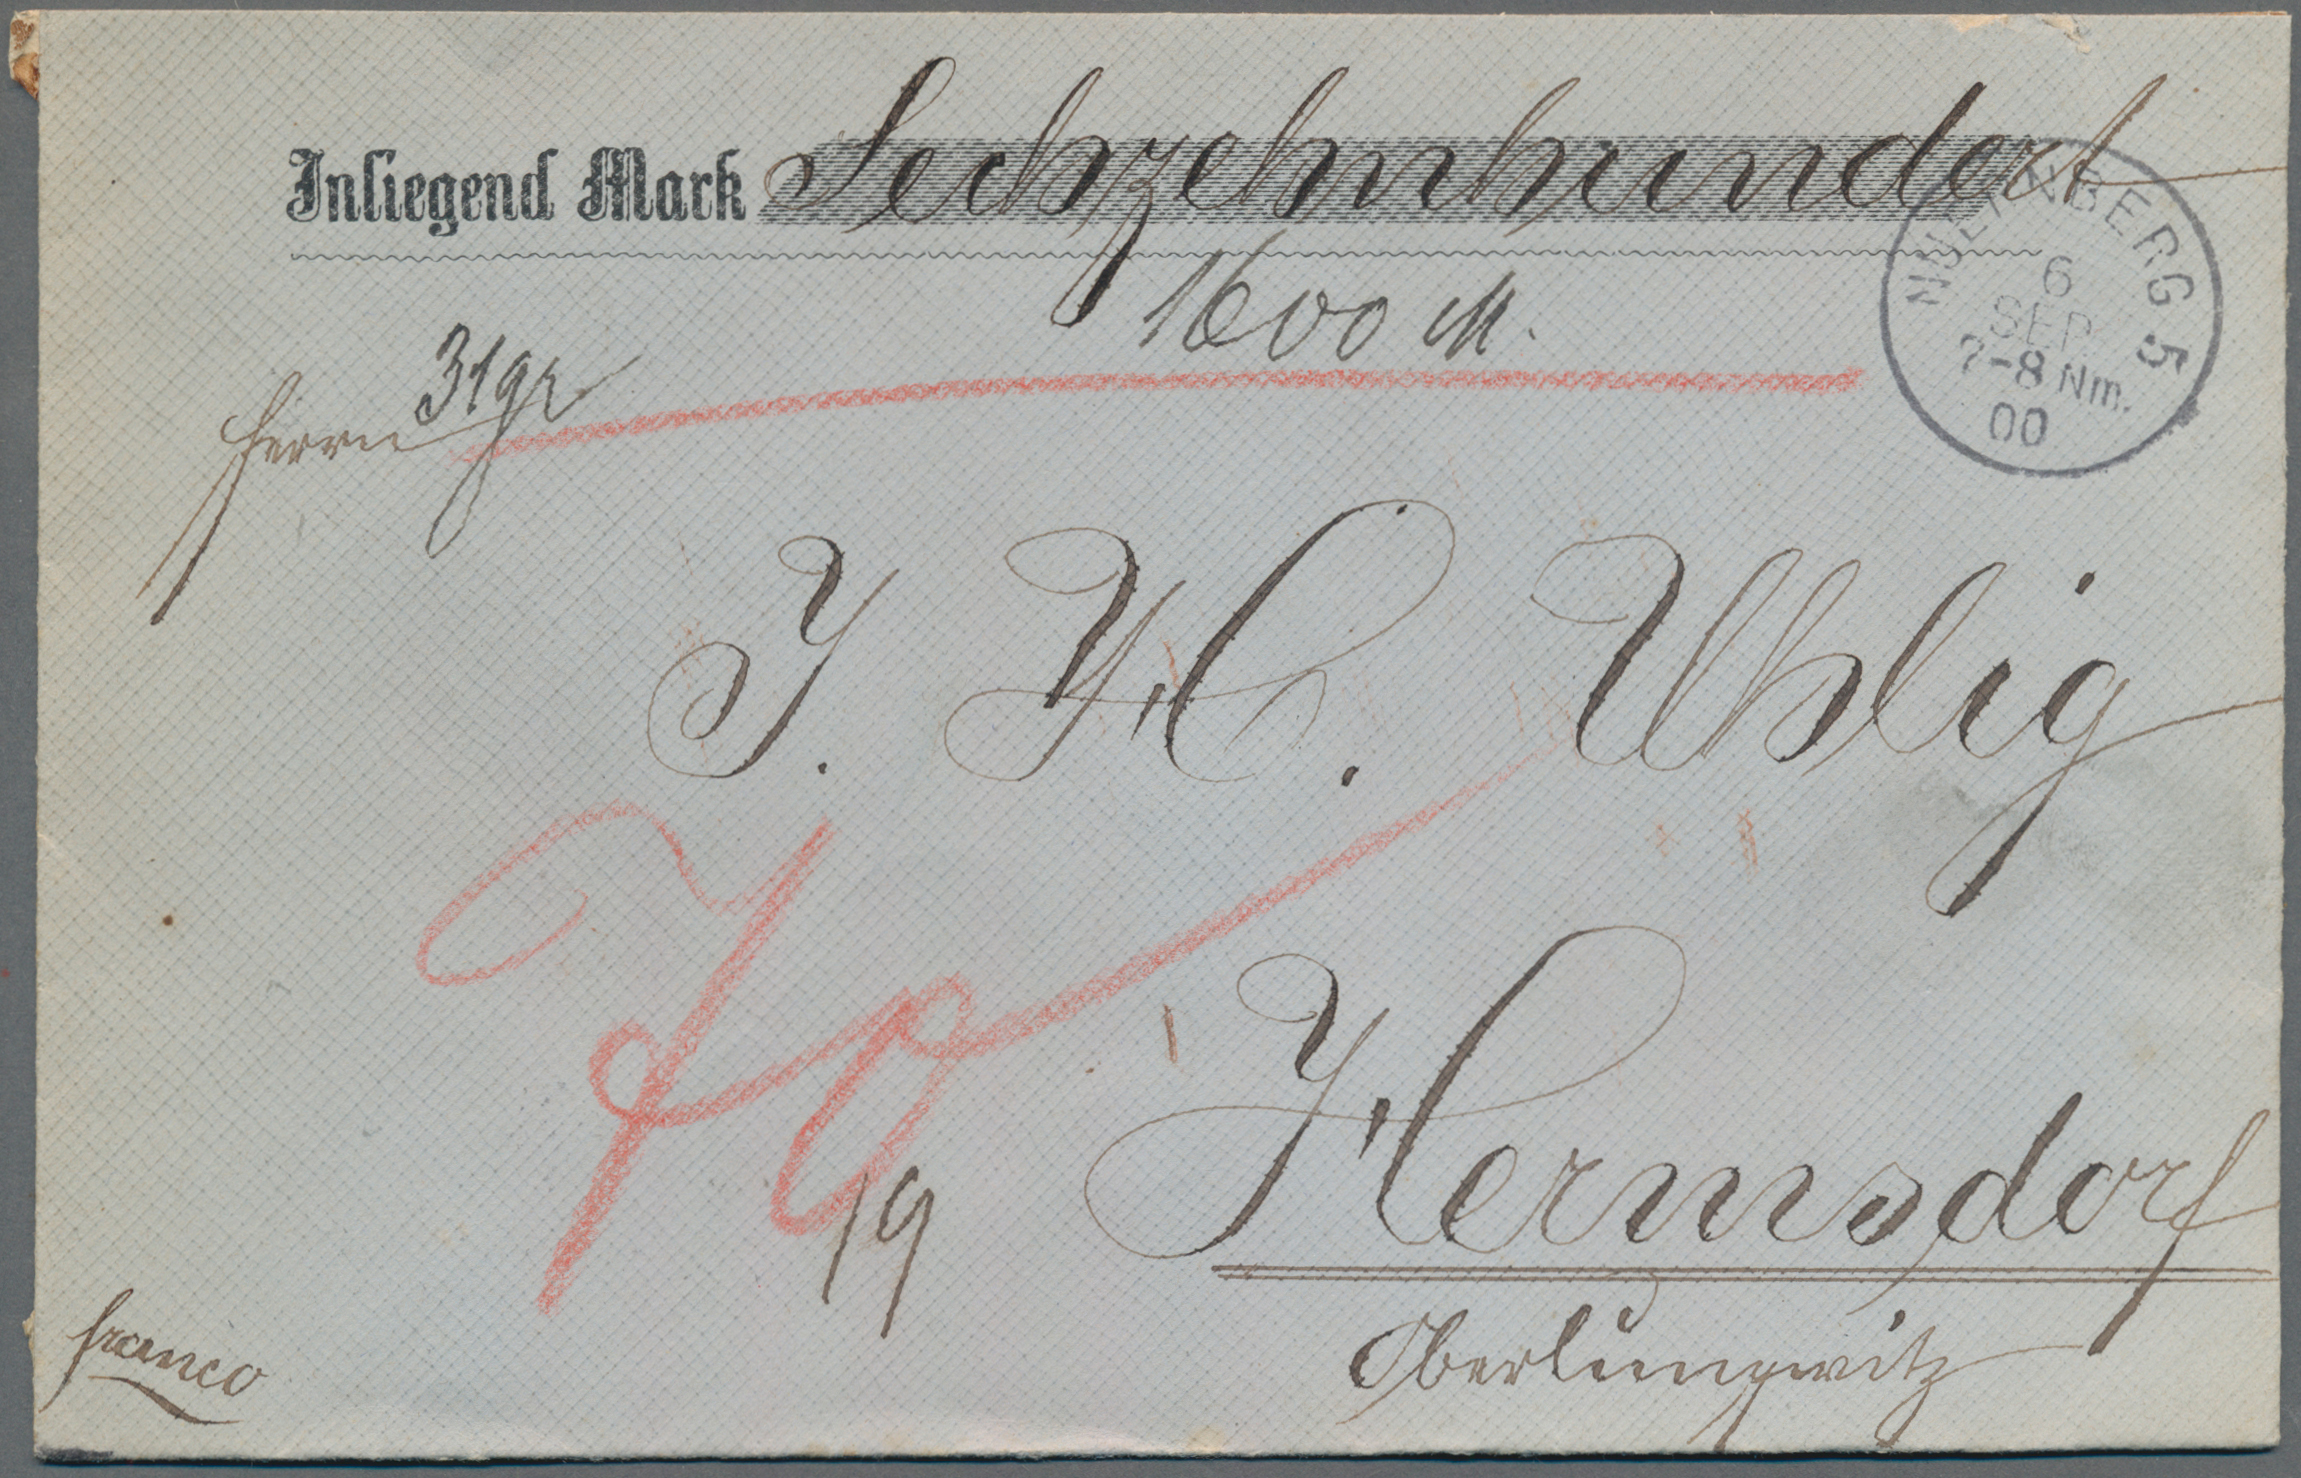 Inliegend Mark Sechzehnhundert
1600 M.
NUERNBERG 5
6
SEP.
7-8 Nm.
00
31 gr
Herrn
J. H. Uhlig
70
19
Hermsdorf
Oberlungwitz
franco